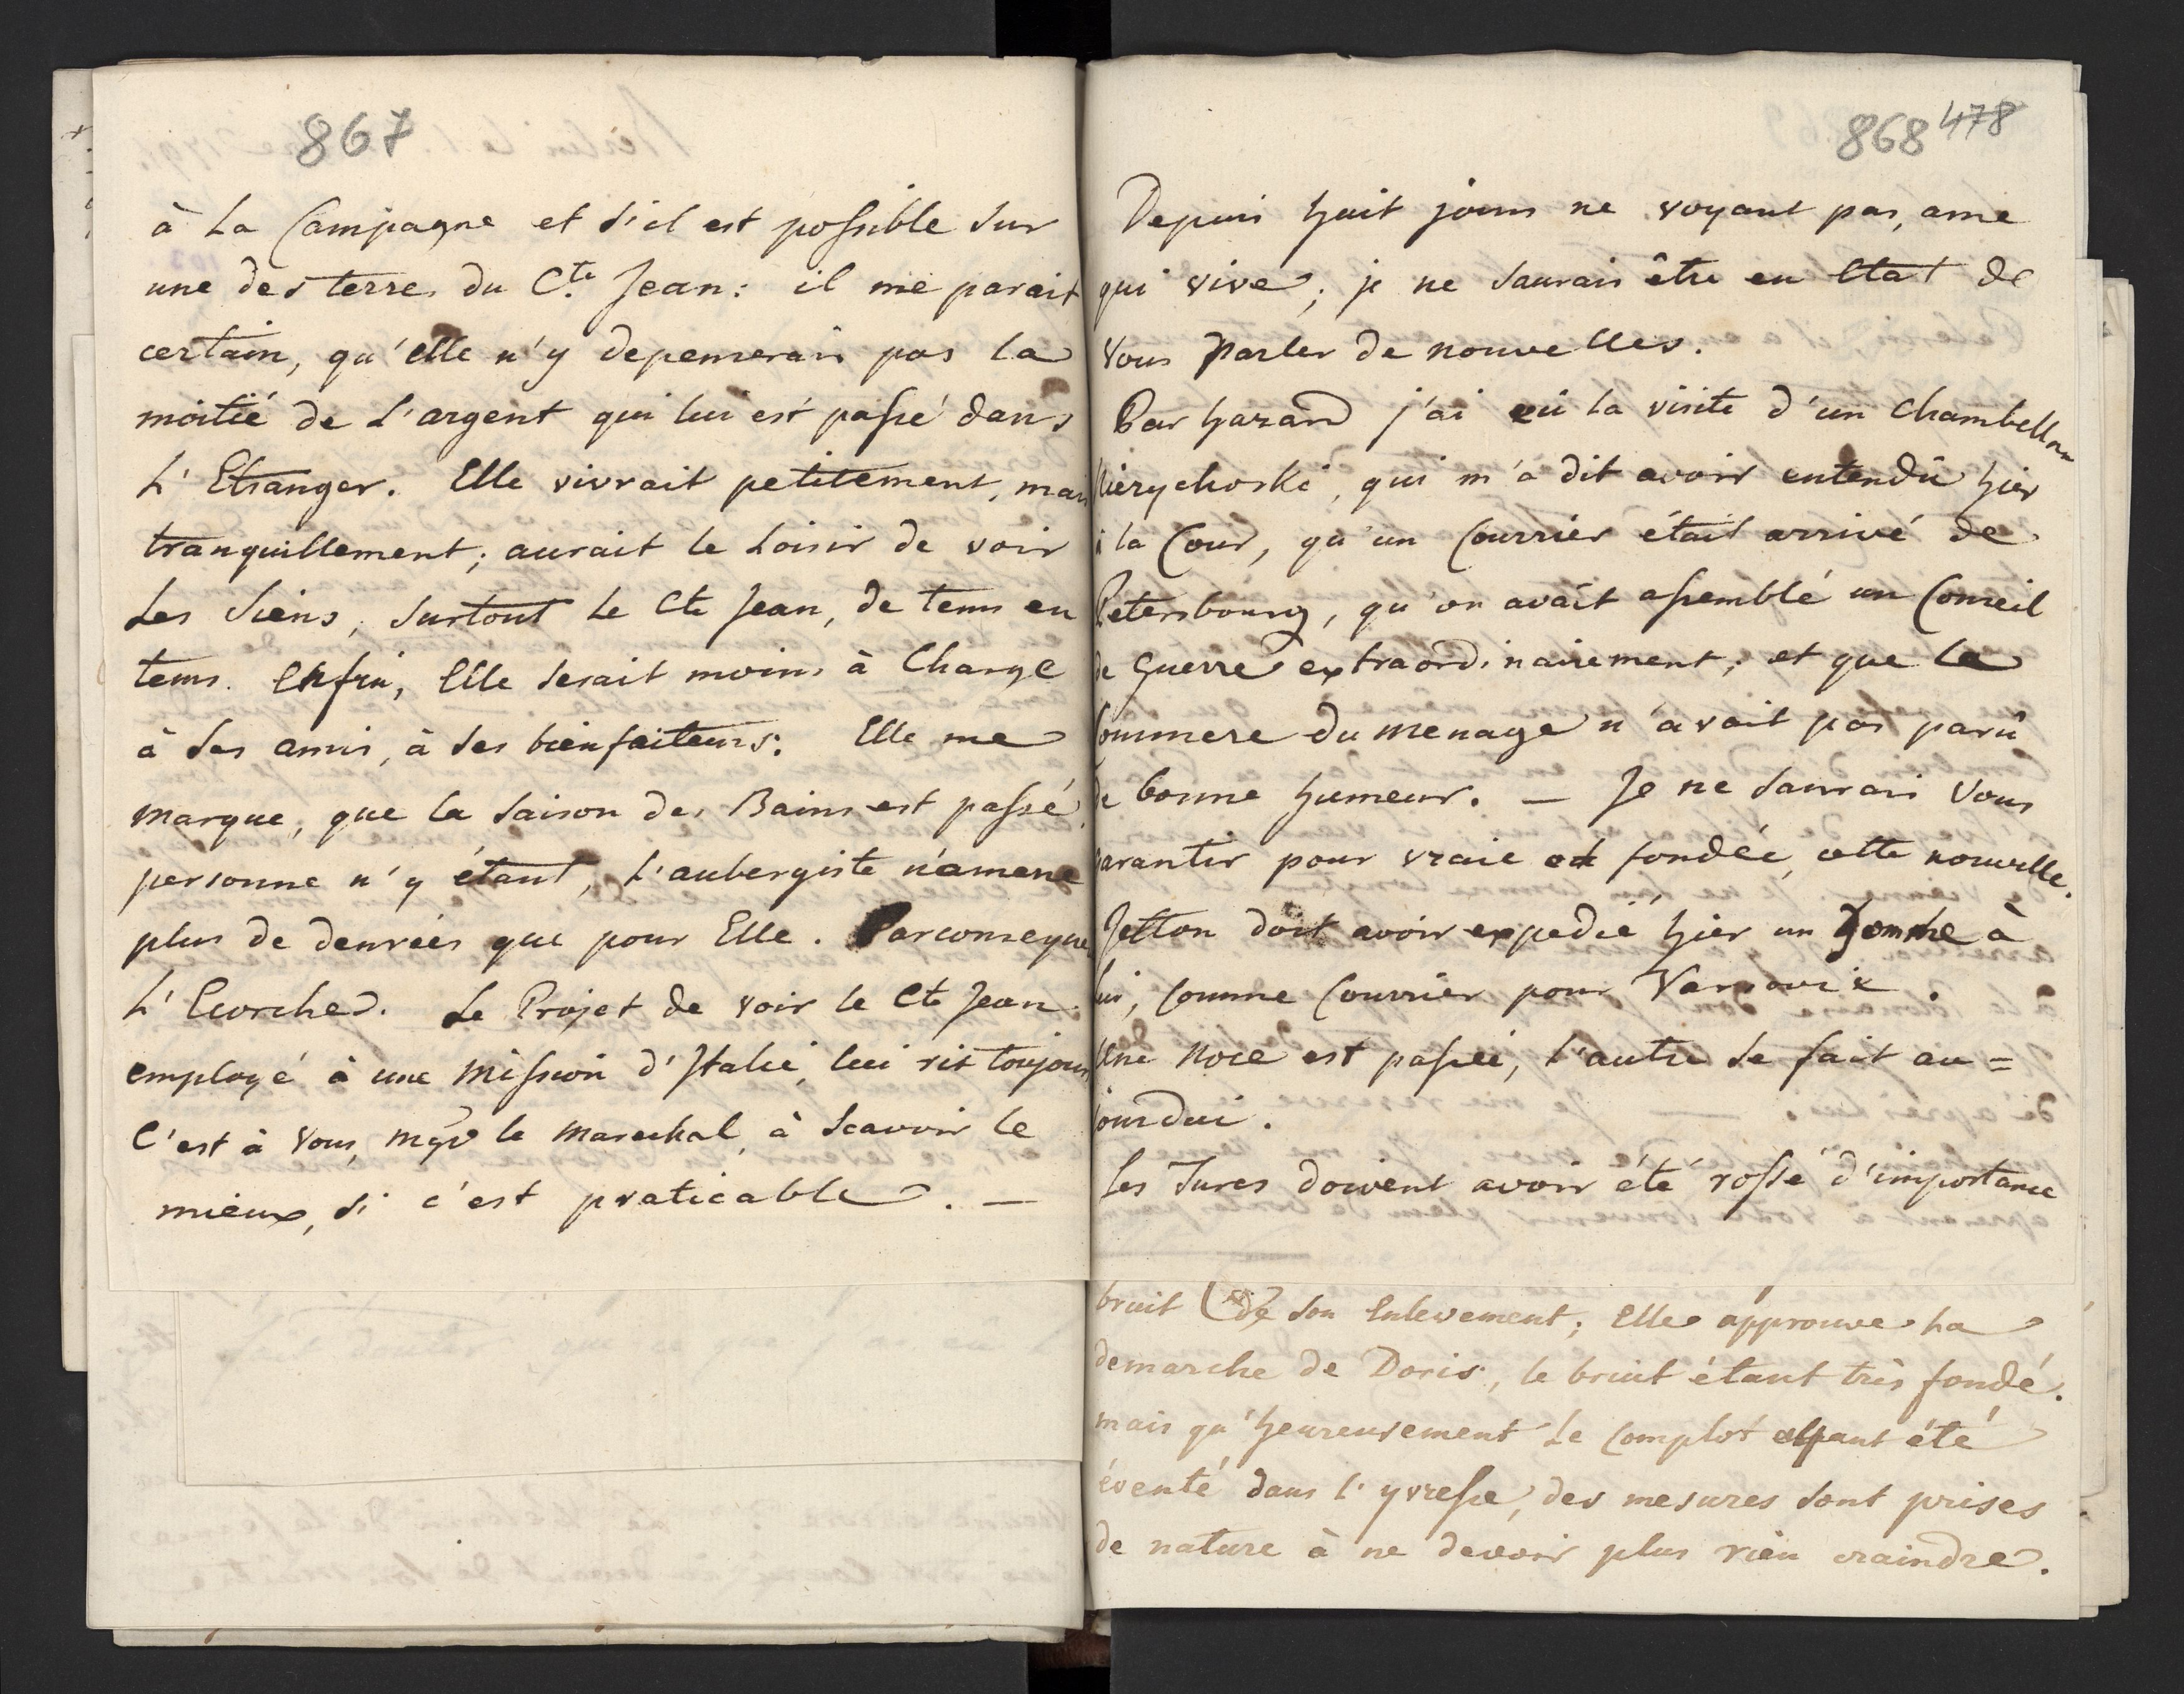 867
à La Campagne et s'il est possible sur
une des terres du Cte Jean: il me parait
certain, qu'elle n'y depenserais pas la
moitié de L'argent qui lui est passé dans
L'Etranger. Elle vivrait petitement, mais
tranquillement; aurait le Loisir de voir
Les Siens, surtout le Cte Jean, de tems en
tems. Enfin, Elle serait moins à Charge
à ses amis, à ses bienfaiteurs: Elle me
marque, que la Saison des Bains est passé
personne n'y étant, L'aubergiste n'amene
plus de denrées que pour Elle. Parconseque
L'Ecorche. Le Projet de voir le Cte Jean
employé à une Mission d'Italie, lui rit toujours
C'est à Vous, le Marechal, à Scavoir le
mieux, si c'est praticable. —
868 478
Depuis huit jours ne voyant pas, ame
qui vive; je ne saurais être en Etat de
Vous Parler de nouvelles.
Par hazard j'ai eû la visite d'un Chambellan
qui m'a dit avoir entendû hier
à la Cour, qu'un Courrier était arrivé de
Petersbourg, qu'on avait assemblé un Conseil
de Guerre extraordinairement; et que le
Commere du Menage n'avait pas parû
de bonne humeur. — Je ne saurais Vous
garantir pour vraie et fondée, cette nouvelle.
Jetton doit avoir expedié hier un homme à
lui, comme Courrier pour Varsovie.
Une Noce est passée, l'autre se fait au=
jourdui.
Les Turcs doivent avoir été rossé d'importance
bruit de son Enlevement; Elle approuve La
demarche de Doris, le bruit étant très fondé.
mais qu'heureusement Le Complot ayant été
éventé dans l'yvresse, des mesures sont prises
de nature à ne devoir plus rien craindre.